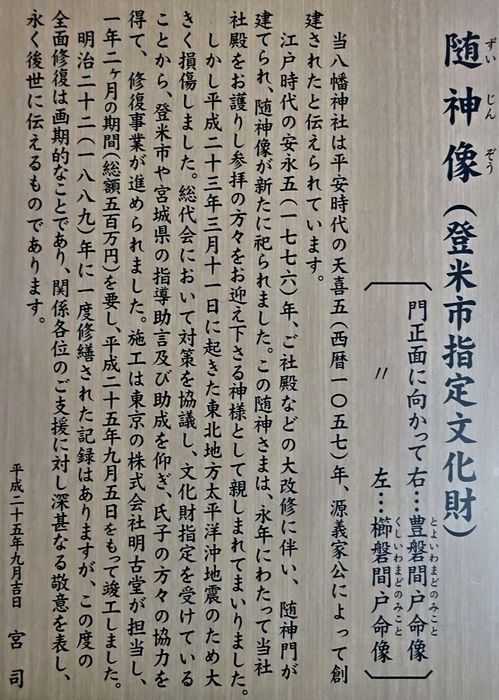 随神像(登米市指定文化財)
ずいじんぞう
門正面に向かって右…豊磐間戸命像
とよいわまどのみこと
〃 左…櫛磐間戸命像
くしいわまどのみこと
当八幡神社は平安時代の天喜五(西暦一〇五七)年、源義家公によって創
建されたと伝えられています。
江戸時代の安永五(一七七六)年、ご社殿などの大改修に伴い、随神門が
建てられ、随神像が新たに祀られました。この随神さまは、永年にわたって当社
社殿をお護りし参拝の方々をお迎え下さる神様として親しまれてまいりました。
しかし平成二十三年三月十一日に起きた東北地方太平洋沖地震のため大
きく損傷しました。総代会において対策を協議し、文化財指定を受けている
ことから、登米市や宮城県の指導助言及び助成を仰ぎ、氏子の方々の協力を
得て、修復事業が進められました。施工は東京の株式会社明古堂が担当し、
一年二ヶ月の期間(総額五百万円)を要し、平成二十五年九月五日をもって竣工しました。
明治二十二(一八八九)年に一度修繕された記録はありますが、この度の
全面修復は画期的なことであり、関係各位のご支援に対し深甚なる敬意を表し、
永く後世に伝えるものであります。
平成二十五年九月吉日 宮司